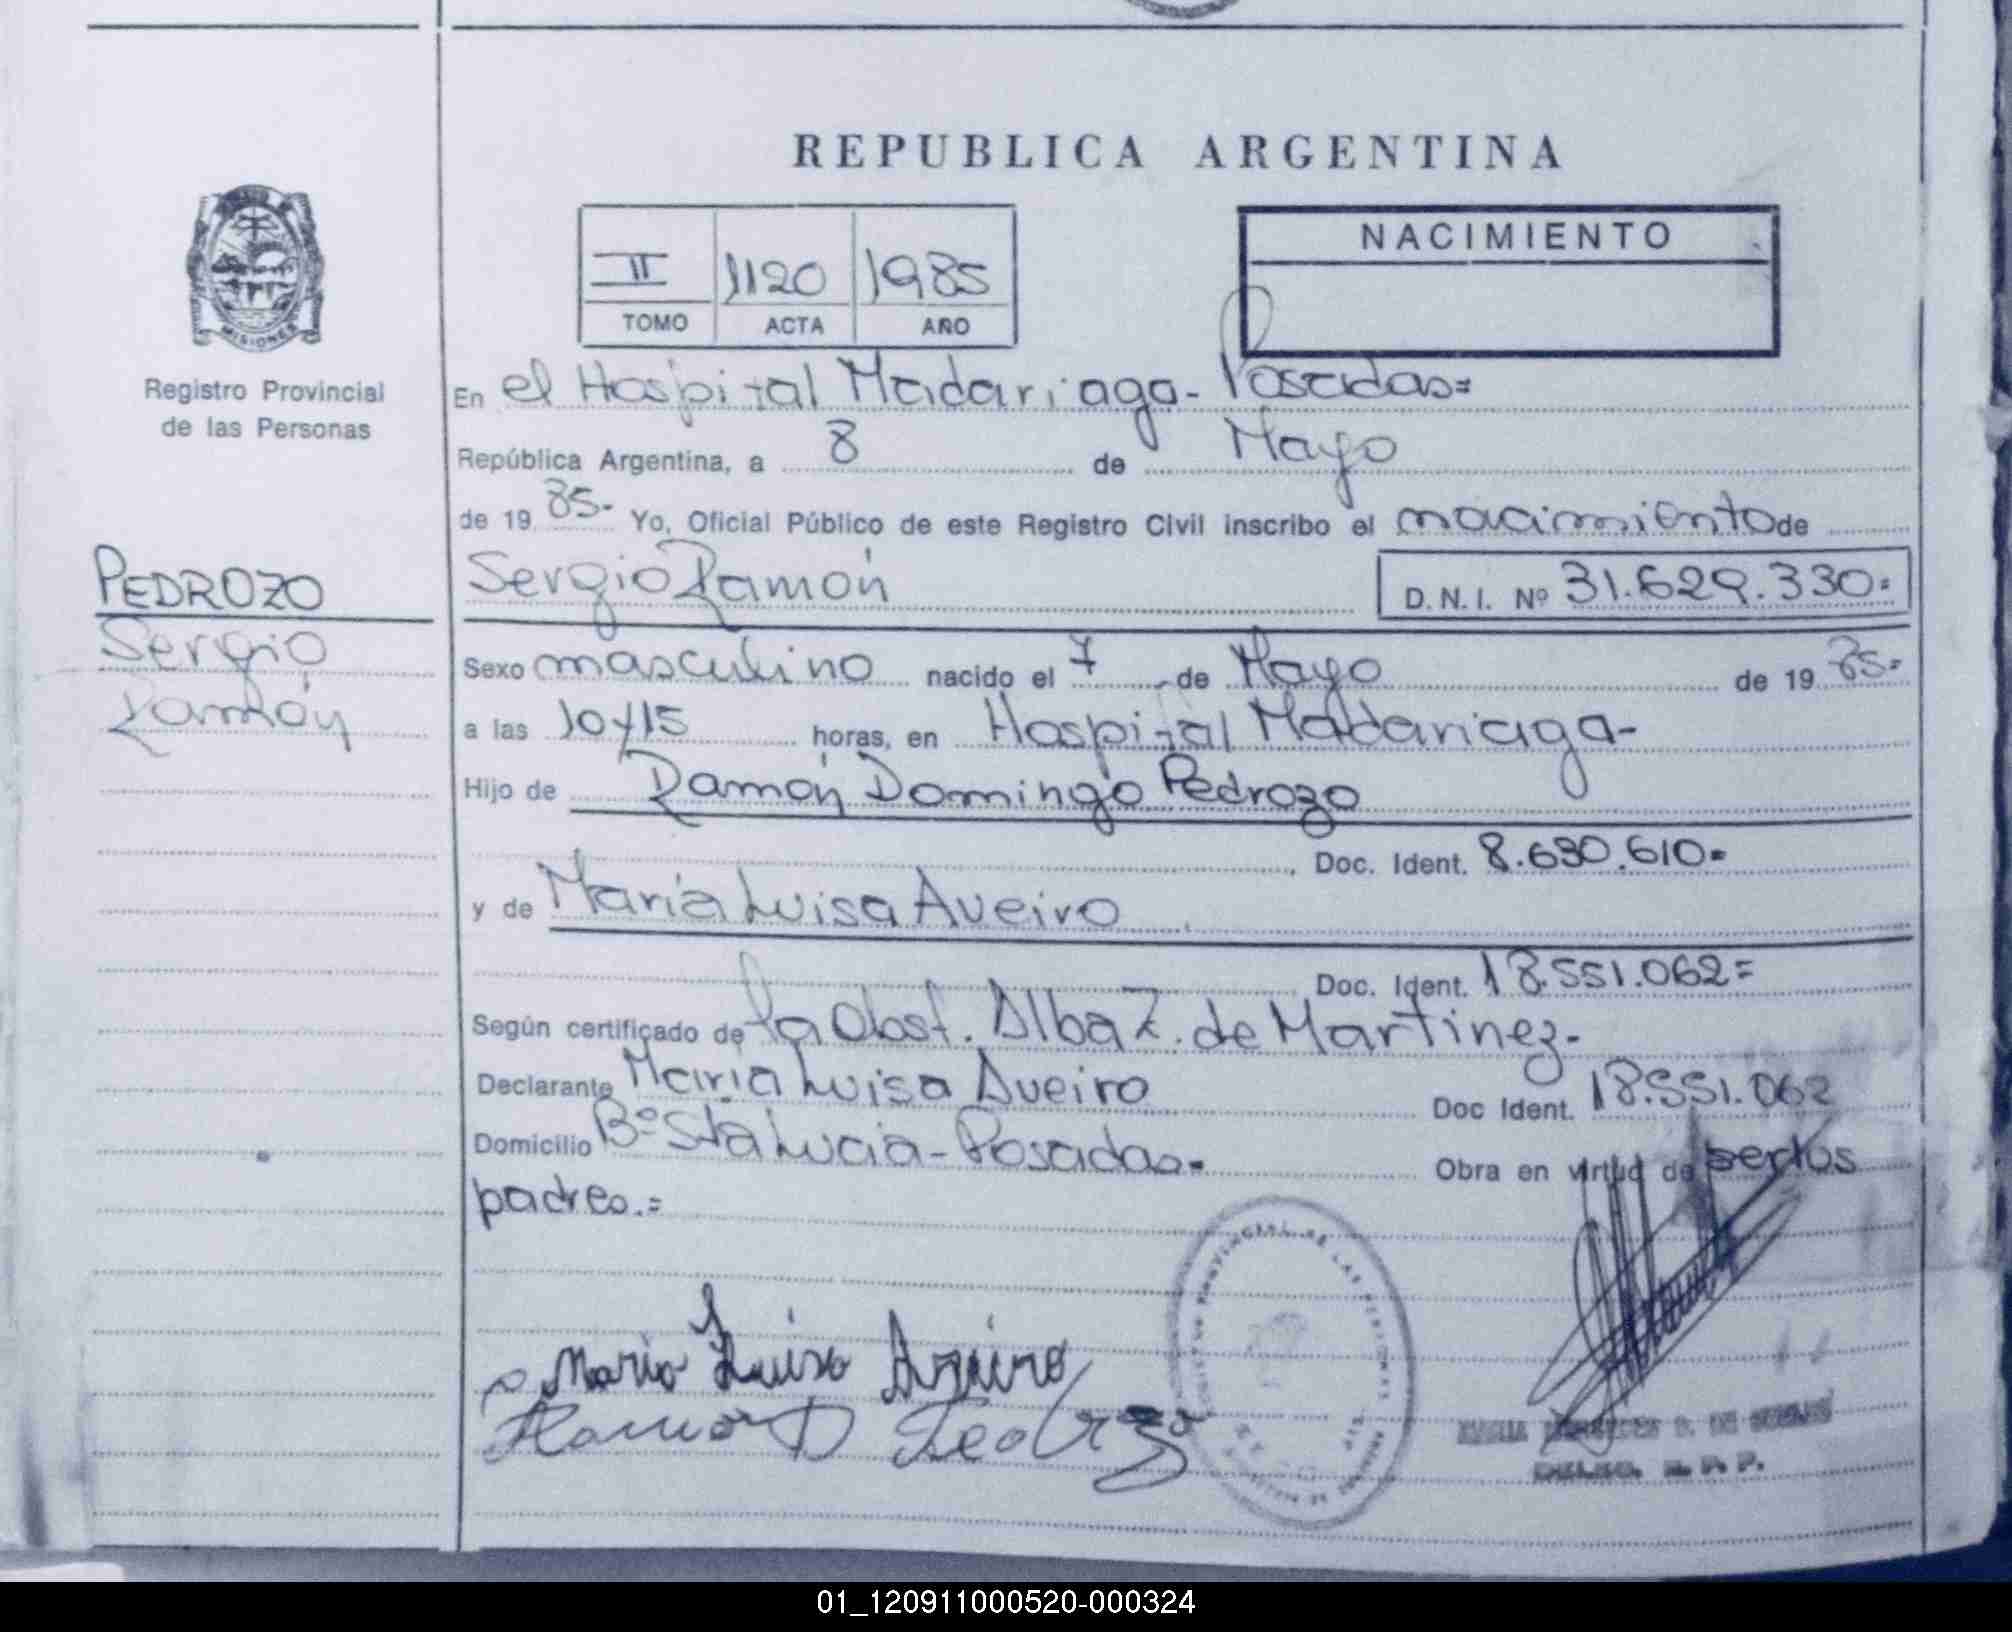 REPUBLICA ARGENTINA
NACIMIENTO
II 1120 1985
TOMO ACTA AÑO
MISIONES
Registro Provincial
de las Personas
En el Hospital Madariaga- Posadas=
República Argentina, a 8 de Mayo
de 19 85- Yo, Oficial Público de este Registro Civil inscribo el nacimiento de
PEDROZO
Sergio
Ramón
Sergio Ramón D.N.I. Nº 31.629.330=
Sexo masculino nacido el 7 de Mayo de 19 85-
a las 10y15 horas, en Hospital Madariaga-
Hijo de Ramón Domingo Pedrozo
Doc. Ident. 8.630.610=
y de María Luisa Aveiro
Doc. Ident. 18.551.062=
Según certificado de la Obst. Alba Z. de Martinez-
Declarante María Luisa Aveiro Doc Ident. 18.551.062
Domicilio Bº Sta Lucia- Posadas= Obra en virtud de ser los
padres.=
Maria Luisa Aveiro
Ramon D Pedrozo
PROVINCIAL DE LAS PERSONAS
01_120911000520-000324